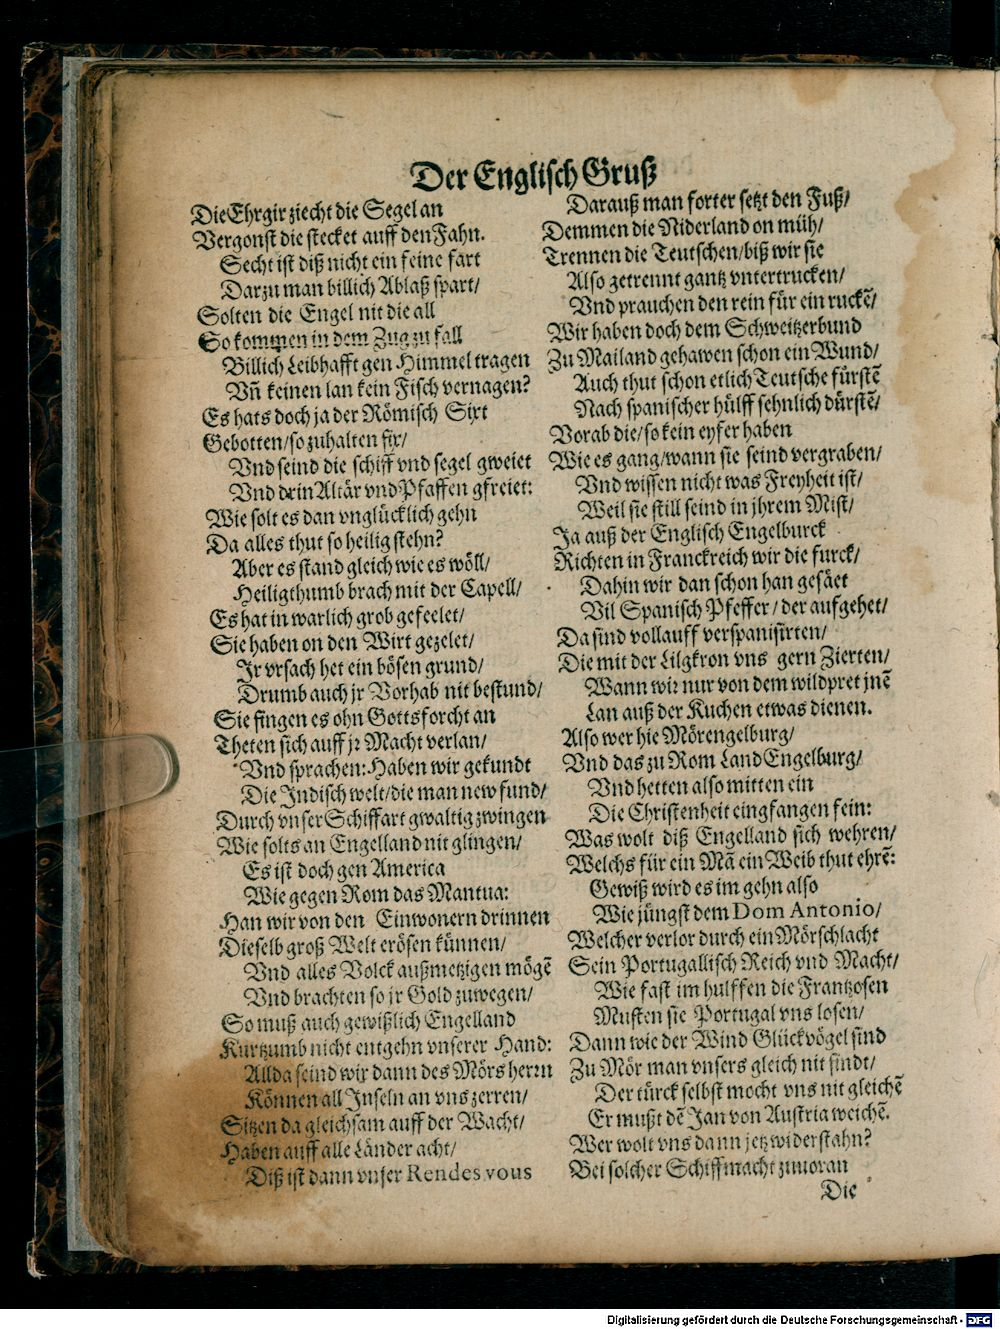 Der Englisch Gruß
Die Ehrgir ziecht die Segel an
Vergonst die stecket auff den Fahn.
Secht ist diß nicht ein feine fart
Darzu man billich Ablaß spart/
Solten die Engel nit die all
So kommen in dem Zug zu fall
Billich Leibhafft gen Himmel tragen
Vñ keinen lan kein Fisch vernagen?
Es hats doch ja der Römisch Sixt
Gebotten/so zuhalten fix/
Vnd seind die schiff vnd segel gweiet
Vnd drin Altär vnd Pfaffen gfreiet:
Wie solt es dan vnglücklich gehn
Da alles thut so heilig stehn?
Aber es stand gleich wie es wöll/
Heiligthumb brach mit der Capell/
Es hat in warlich grob gefeelet/
Sie haben on den Wirt gezelet/
Ir vrsach het ein bösen grund/
Drumb auch jr Vorhab nit bestund/
Sie fingen es ohn Gottsforcht an
Theten sich auff jr Macht verlan/
Vnd sprachen: Haben wir gekundt
Die Indisch welt/die man new fund/
Durch vnser Schiffart gwaltig zwingen
Wie solts an Engelland nit glingen/
Es ist doch gen America
Wie gegen Rom das Mantua:
Han wir von den Einwonern drinnen
Dieselb groß Welt erösen künnen/
Vnd alles Volck außmetzigen mögẽ
Vnd brachten so jr Gold zuwegen/
So muß auch gewißlich Engelland
Kurtzumb nicht entgehn vnserer Hand:
Allda seind wir dann des Mörs herrn
Können all Inseln an vns zerren/
Sitzen da gleichsam auff der Wacht/
Haben auff alle Länder acht/
Diß ist dann vnser Rendes vous
Darauß man forter setzt den Fuß/
Demmen die Niderland on müh/
Trennen die Teutschen/biß wir sie
Also getrennt gantz vntertrucken/
Vnd prauchen den rein für ein ruckẽ/
Wir haben doch dem Schweitzerbund
Zu Mailand gehawen schon ein Wund/
Auch thut schon etlich Teutsche fürstẽ
Nach spanischer hülff sehnlich dürstẽ/
Vorab die/so kein eyfer haben
Wie es gang/wann sie seind vergraben/
Vnd wissen nicht was Freyheit ist/
Weil sie still seind in jhrem Mist/
Ja auß der Englisch Engelburck
Richten in Franckreich wir die furck/
Dahin wir dan schon han gesäet
Vil Spanisch Pfeffer/der aufgehet/
Da sind vollauff verspanisirten/
Die mit der Lilgkron vns gern Zierten/
Wann wir nur von dem wildpret jnẽ
Lan auß der Kuchen etwas dienen.
Also wer hie Mörengelburg/
Vnd das zu Rom Land Engelburg/
Vnd hetten also mitten ein
Die Christenheit eingfangen fein:
Was wolt diß Engelland sich wehren/
Welchs für ein Mã ein Weib thut ehrẽ:
Gewiß wird es im gehn also
Wie jüngst dem Dom Antonio/
Welcher verlor durch ein Mörschlacht
Sein Portugallisch Reich vnd Macht/
Wie fast im hulffen die Frantzosen
Musten sie Portugal vns losen/
Dann wie der Wind Glückvögel sind
Zu Mör man vnsers gleich nit sindt/
Der türck selbst mocht vns nit gleichẽ
Er mußt dẽ Jan von Austria weichẽ.
Wer wolt vns dann jetz widerstahn?
Bei solcher Schiffmacht zuuoran
Die
Digitalisierung gefördert durch die Deutsche Forschungsgemeinschaft - DFG